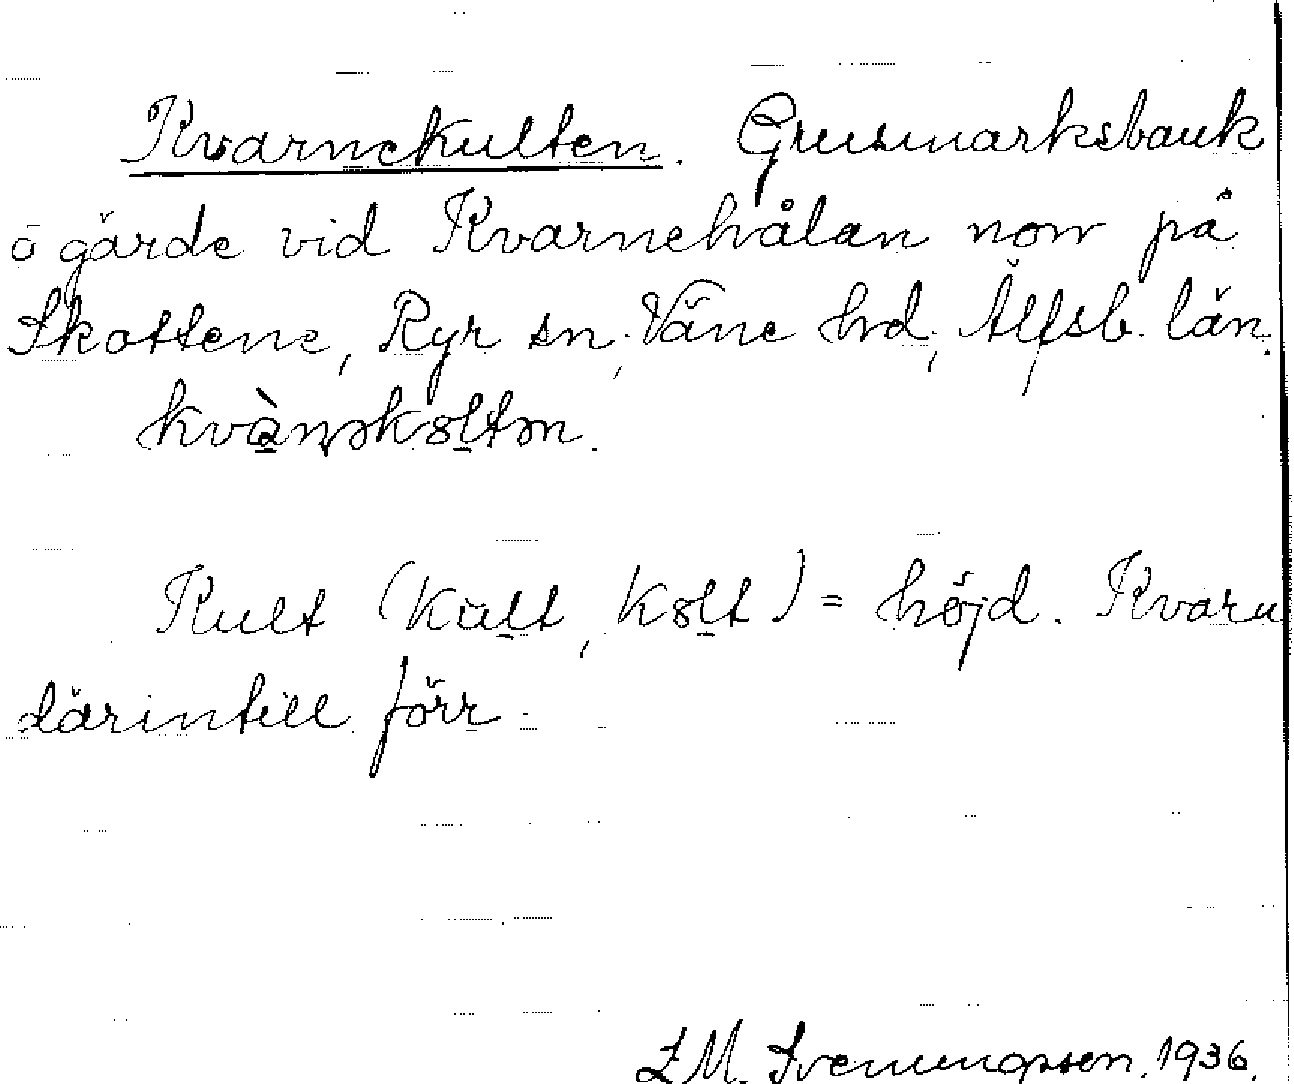 Kvarnekulten. Grusmarksbank
o gärde vid Kvarnehålan norr på
Skottene, Ryr sn, Väne hd, Älfsb. län.
kvànəkɵltən.
Kult (kŭlt, kɵlt) = höjd. Kvarn
därintill förr.
Z. M. Svenungsson. 1936.